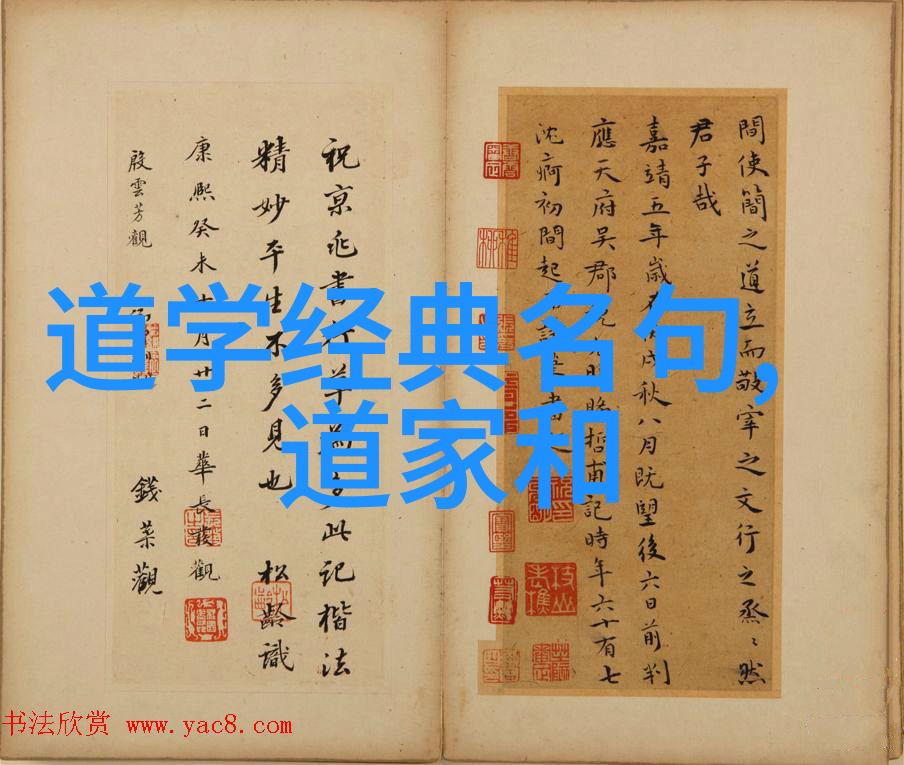 道学经典名句,
道家和
間使簡之道立而敬宰之文行之烝〻然
君子哉
嘉靖五年歲戌秋八月既望後六日前判
應天府吳郡哲甫記時年六十有七
沈痾初間起
祝京兆書行草為多此記楷法
精妙平生不多見也 松齡識
康熙癸未十月廿二日華長發觀
殷雲芳觀
錢菜觀
书法欣赏 www.yac8.com